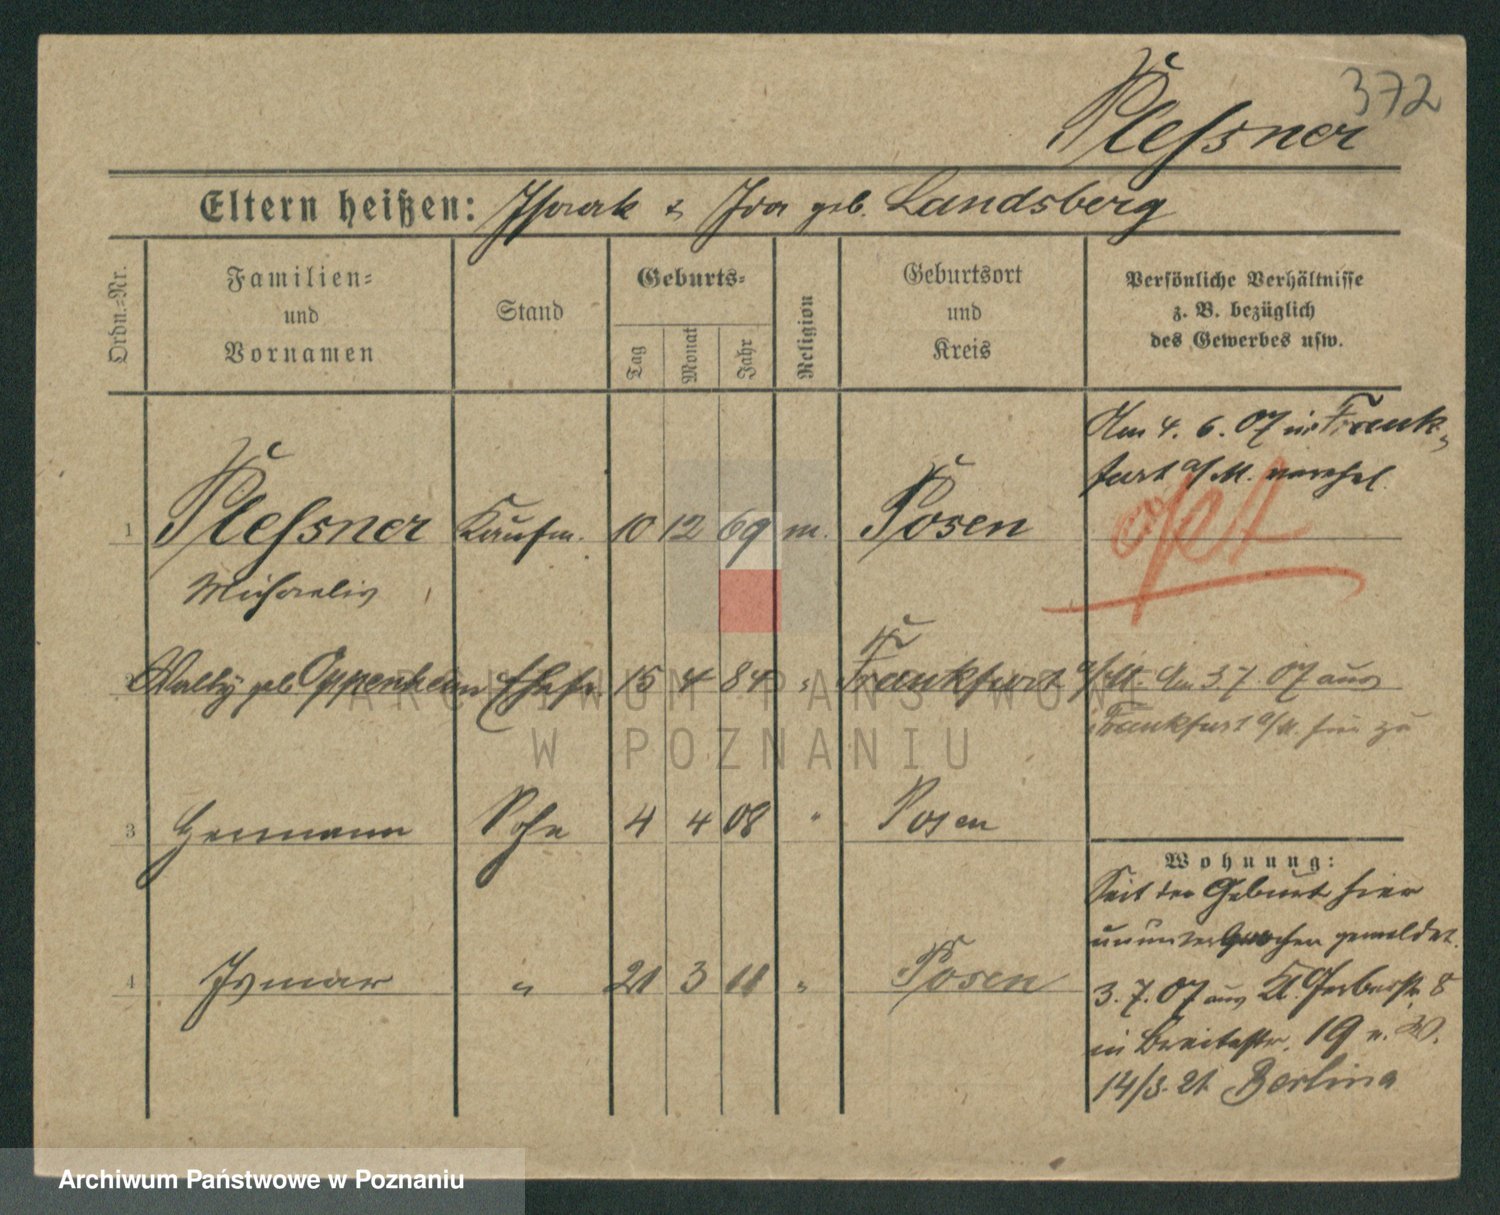 372
Plessner
Eltern heißen: Isaak & Ida geb. Landsberg
Ordn.=Nr.
Familien=
und
Vornamen
Stand
Geburts=
Tag
Monat
Jahr
Religion
Geburtsort
und
Kreis
Persönliche Verhältnisse
z. B. bezüglich
des Gewerbes usw.
Am 4. 6. 07 in Frank-
furt a/M. verehel.
1 Plessner Kaufm. 10 12 69 m. Posen
Michaelis
2 Wally geb Oppenheim Ehefr. 15 4 84 " Frankfurt a/M. Am 3. 7. 07 aus
Frankfurt a/M. hier zu
3 Hermann Sohn 4 4 08 " Posen
Wohnung:
Seit der Geburt hier
ununterbrochen gemeldet.
4 Ismar " 21 3 11 " Posen
3. 7. 07 aus Kl. Gerberstr. 8
in Breitestr. 19 n. W.
14/3. 21 Berlin
ARCHIWUM PAŃSTWOWE
W POZNANIU
Archiwum Państwowe w Poznaniu